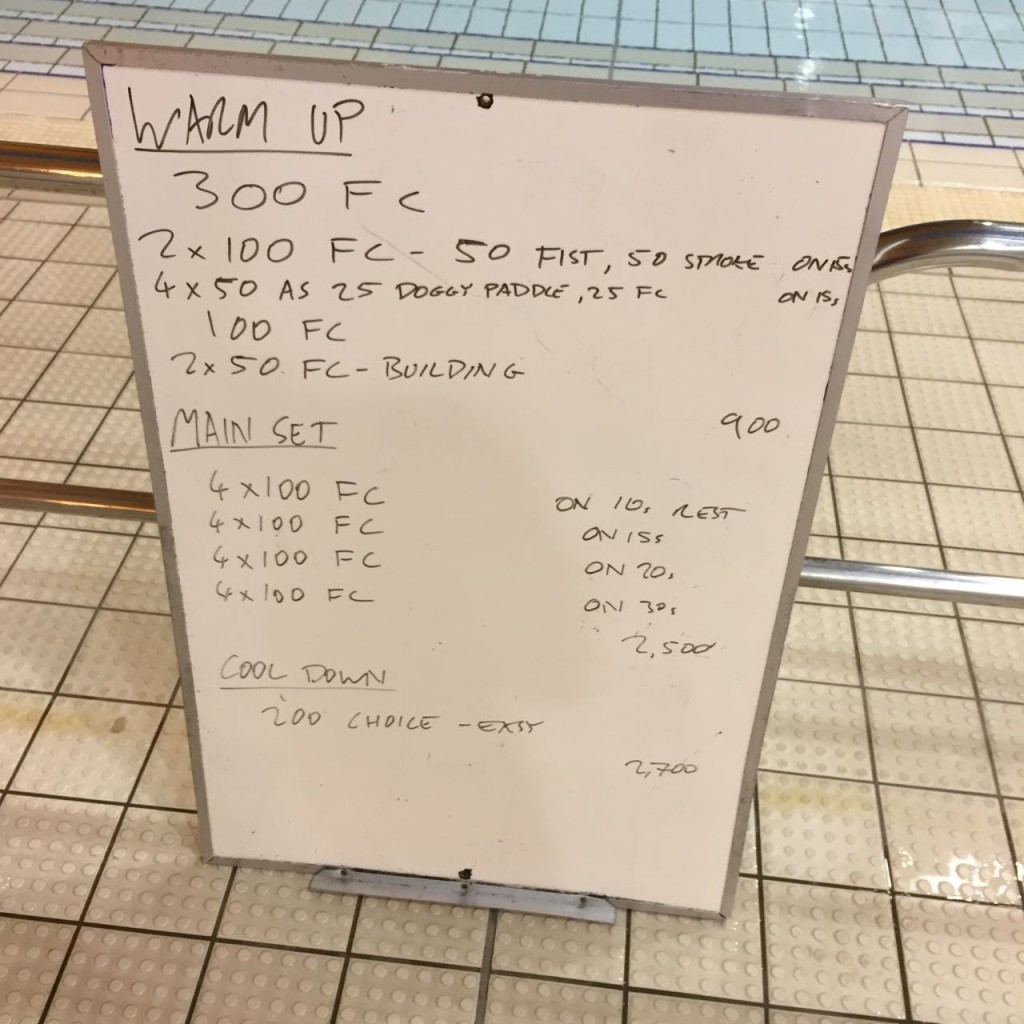 WARM UP
300 FC
2x100 FC - 50 FIST, 50 STROKE ON 15s
4x50 AS 25 DOGGY PADDLE, 25 FC ON 15s
100 FC
2x50 FC - BUILDING
900
MAIN SET
4x100 FC ON 10s REST
4x100 FC ON 15s
4x100 FC ON 20s
4x100 FC ON 30s
2,500
COOL DOWN
200 CHOICE - EASY
2,700